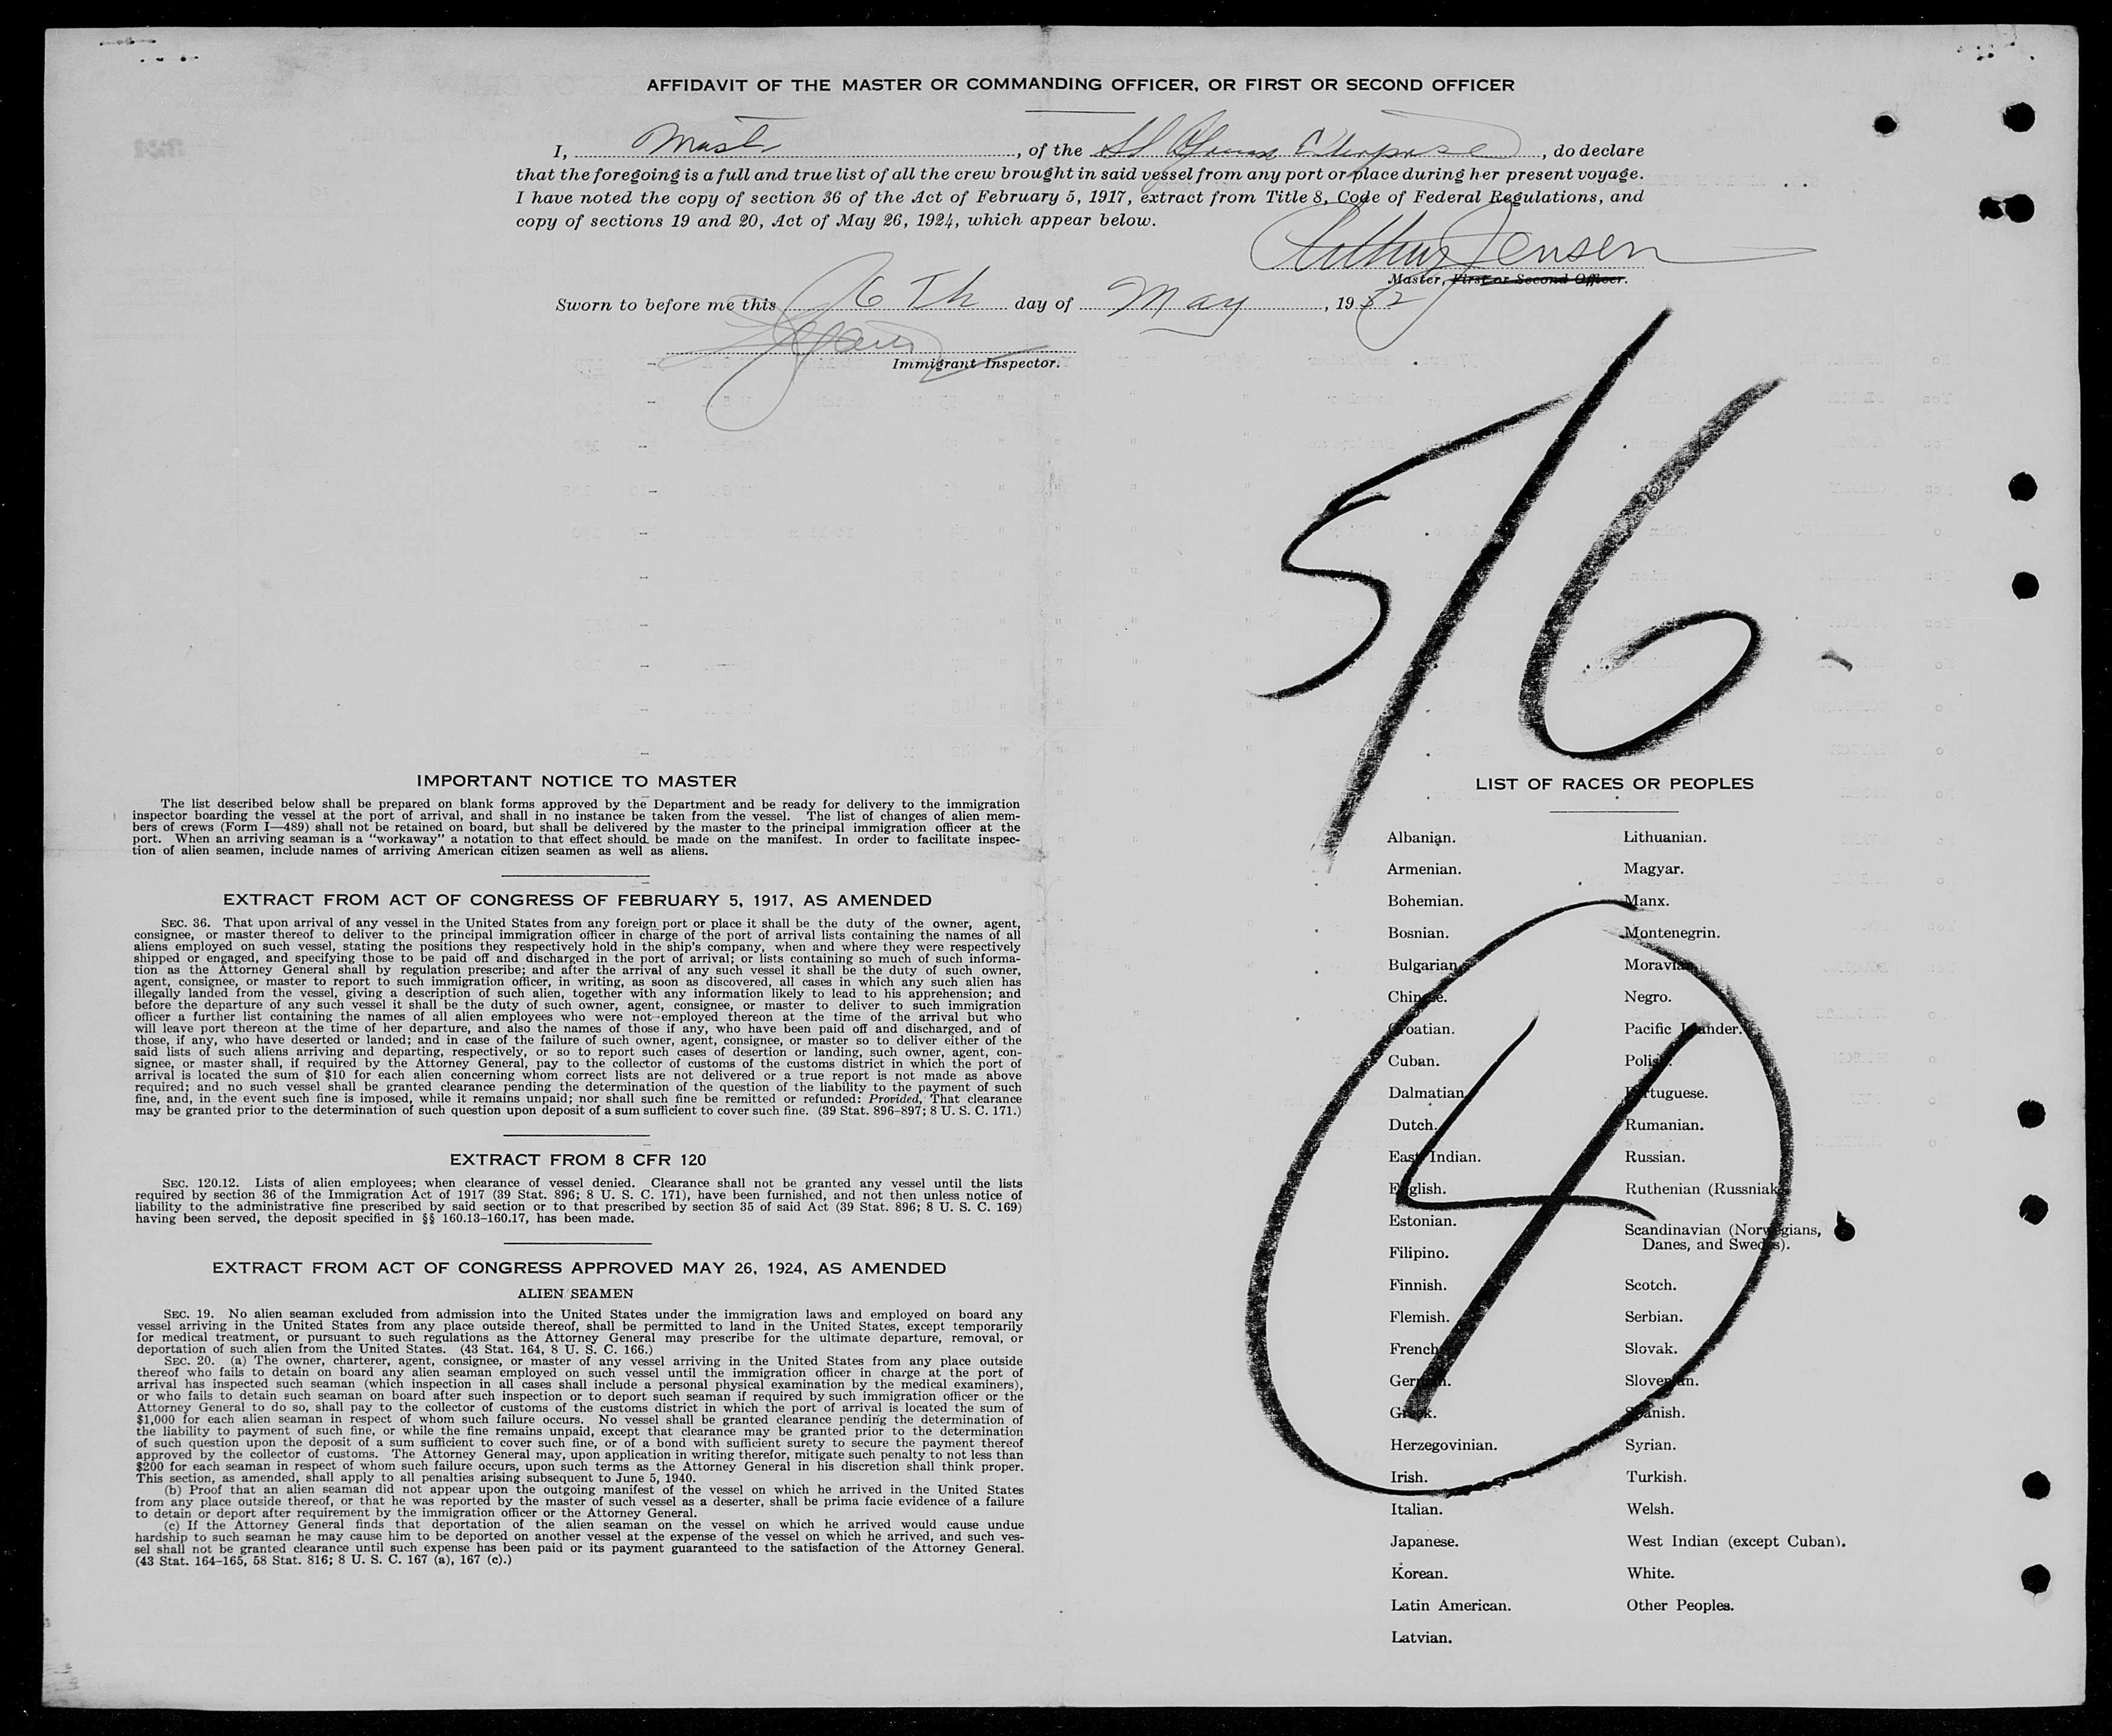 AFFIDAVIT OF THE MASTER OR COMMANDING OFFICER, OR FIRST OR SECOND OFFICER
I, Master, of the SS Enterprise, do declare
that the foregoing is a full and true list of all the crew brought in said vessel from any port or place during her present voyage.
I have noted the copy of section 36 of the Act of February 5, 1917, extract from Title 8, Code of Federal Regulations, and
copy of sections 19 and 20, Act of May 26, 1924, which appear below.
Arthur Jensen
Master, First or Second Officer.
Sworn to before me this 6 Th day of May, 1952
Immigrant Inspector.
5/6
IMPORTANT NOTICE TO MASTER
The list described below shall be prepared on blank forms approved by the Department and be ready for delivery to the immigration
inspector boarding the vessel at the port of arrival, and shall in no instance be taken from the vessel. The list of changes of alien mem-
bers of crews (Form I—489) shall not be retained on board, but shall be delivered by the master to the principal immigration officer at the
port. When an arriving seaman is a "workaway" a notation to that effect should be made on the manifest. In order to facilitate inspec-
tion of alien seamen, include names of arriving American citizen seamen as well as aliens.
EXTRACT FROM ACT OF CONGRESS OF FEBRUARY 5, 1917, AS AMENDED
SEC. 36. That upon arrival of any vessel in the United States from any foreign port or place it shall be the duty of the owner, agent,
consignee, or master thereof to deliver to the principal immigration officer in charge of the port of arrival lists containing the names of all
aliens employed on such vessel, stating the positions they respectively hold in the ship's company, when and where they were respectively
shipped or engaged, and specifying those to be paid off and discharged in the port of arrival; or lists containing so much of such informa-
tion as the Attorney General shall by regulation prescribe; and after the arrival of any such vessel it shall be the duty of such owner,
agent, consignee, or master to report to such immigration officer, in writing, as soon as discovered, all cases in which any such alien has
illegally landed from the vessel, giving a description of such alien, together with any information likely to lead to his apprehension; and
before the departure of any such vessel it shall be the duty of such owner, agent, consignee, or master to deliver to such immigration
officer a further list containing the names of all alien employees who were not employed thereon at the time of the arrival but who
will leave port thereon at the time of her departure, and also the names of those if any, who have been paid off and discharged, and of
those, if any, who have deserted or landed; and in case of the failure of such owner, agent, consignee, or master so to deliver either of the
said lists of such aliens arriving and departing, respectively, or so to report such cases of desertion or landing, such owner, agent, con-
signee, or master shall, if required by the Attorney General, pay to the collector of customs of the customs district in which the port of
arrival is located the sum of $10 for each alien concerning whom correct lists are not delivered or a true report is not made as above
required; and no such vessel shall be granted clearance pending the determination of the question of the liability to the payment of such
fine, and, in the event such fine is imposed, while it remains unpaid; nor shall such fine be remitted or refunded: Provided, That clearance
may be granted prior to the determination of such question upon deposit of a sum sufficient to cover such fine. (39 Stat. 896-897; 8 U. S. C. 171.)
EXTRACT FROM 8 CFR 120
SEC. 120.12. Lists of alien employees; when clearance of vessel denied. Clearance shall not be granted any vessel until the lists
required by section 36 of the Immigration Act of 1917 (39 Stat. 896; 8 U. S. C. 171), have been furnished, and not then unless notice of
liability to the administrative fine prescribed by said section or to that prescribed by section 35 of said Act (39 Stat. 896; 8 U. S. C. 169)
having been served, the deposit specified in §§ 160.13-160.17, has been made.
EXTRACT FROM ACT OF CONGRESS APPROVED MAY 26, 1924, AS AMENDED
ALIEN SEAMEN
SEC. 19. No alien seaman excluded from admission into the United States under the immigration laws and employed on board any
vessel arriving in the United States from any place outside thereof, shall be permitted to land in the United States, except temporarily
for medical treatment, or pursuant to such regulations as the Attorney General may prescribe for the ultimate departure, removal, or
deportation of such alien from the United States. (43 Stat. 164, 8 U. S. C. 166.)
SEC. 20. (a) The owner, charterer, agent, consignee, or master of any vessel arriving in the United States from any place outside
thereof who fails to detain on board any alien seaman employed on such vessel until the immigration officer in charge at the port of
arrival has inspected such seaman (which inspection in all cases shall include a personal physical examination by the medical examiners),
or who fails to detain such seaman on board after such inspection or to deport such seaman if required by such immigration officer or the
Attorney General to do so, shall pay to the collector of customs of the customs district in which the port of arrival is located the sum of
$1,000 for each alien seaman in respect of whom such failure occurs. No vessel shall be granted clearance pending the determination of
the liability to payment of such fine, or while the fine remains unpaid, except that clearance may be granted prior to the determination
of such question upon the deposit of a sum sufficient to cover such fine, or of a bond with sufficient surety to secure the payment thereof
approved by the collector of customs. The Attorney General may, upon application in writing therefor, mitigate such penalty to not less than
$200 for each seaman in respect of whom such failure occurs, upon such terms as the Attorney General in his discretion shall think proper.
This section, as amended, shall apply to all penalties arising subsequent to June 5, 1940.
(b) Proof that an alien seaman did not appear upon the outgoing manifest of the vessel on which he arrived in the United States
from any place outside thereof, or that he was reported by the master of such vessel as a deserter, shall be prima facie evidence of a failure
to detain or deport after requirement by the immigration officer or the Attorney General.
(c) If the Attorney General finds that deportation of the alien seaman on the vessel on which he arrived would cause undue
hardship to such seaman he may cause him to be deported on another vessel at the expense of the vessel on which he arrived, and such ves-
sel shall not be granted clearance until such expense has been paid or its payment guaranteed to the satisfaction of the Attorney General.
(43 Stat. 164-165, 58 Stat. 816; 8 U. S. C. 167 (a), 167 (c).)
LIST OF RACES OR PEOPLES
Albanian.
Armenian.
Bohemian.
Bosnian.
Bulgarian.
Chinese.
Croatian.
Cuban.
Dalmatian.
Dutch.
East Indian.
English.
Estonian.
Filipino.
Finnish.
Flemish.
French.
German.
Greek.
Herzegovinian.
Irish.
Italian.
Japanese.
Korean.
Latin American.
Latvian.
Lithuanian.
Magyar.
Manx.
Montenegrin.
Moravian.
Negro.
Pacific Islander.
Polish.
Portuguese.
Rumanian.
Russian.
Ruthenian (Russniak).
Scandinavian (Norwegians,
Danes, and Swedes).
Scotch.
Serbian.
Slovak.
Slovenian.
Spanish.
Syrian.
Turkish.
Welsh.
West Indian (except Cuban).
White.
Other Peoples.
4